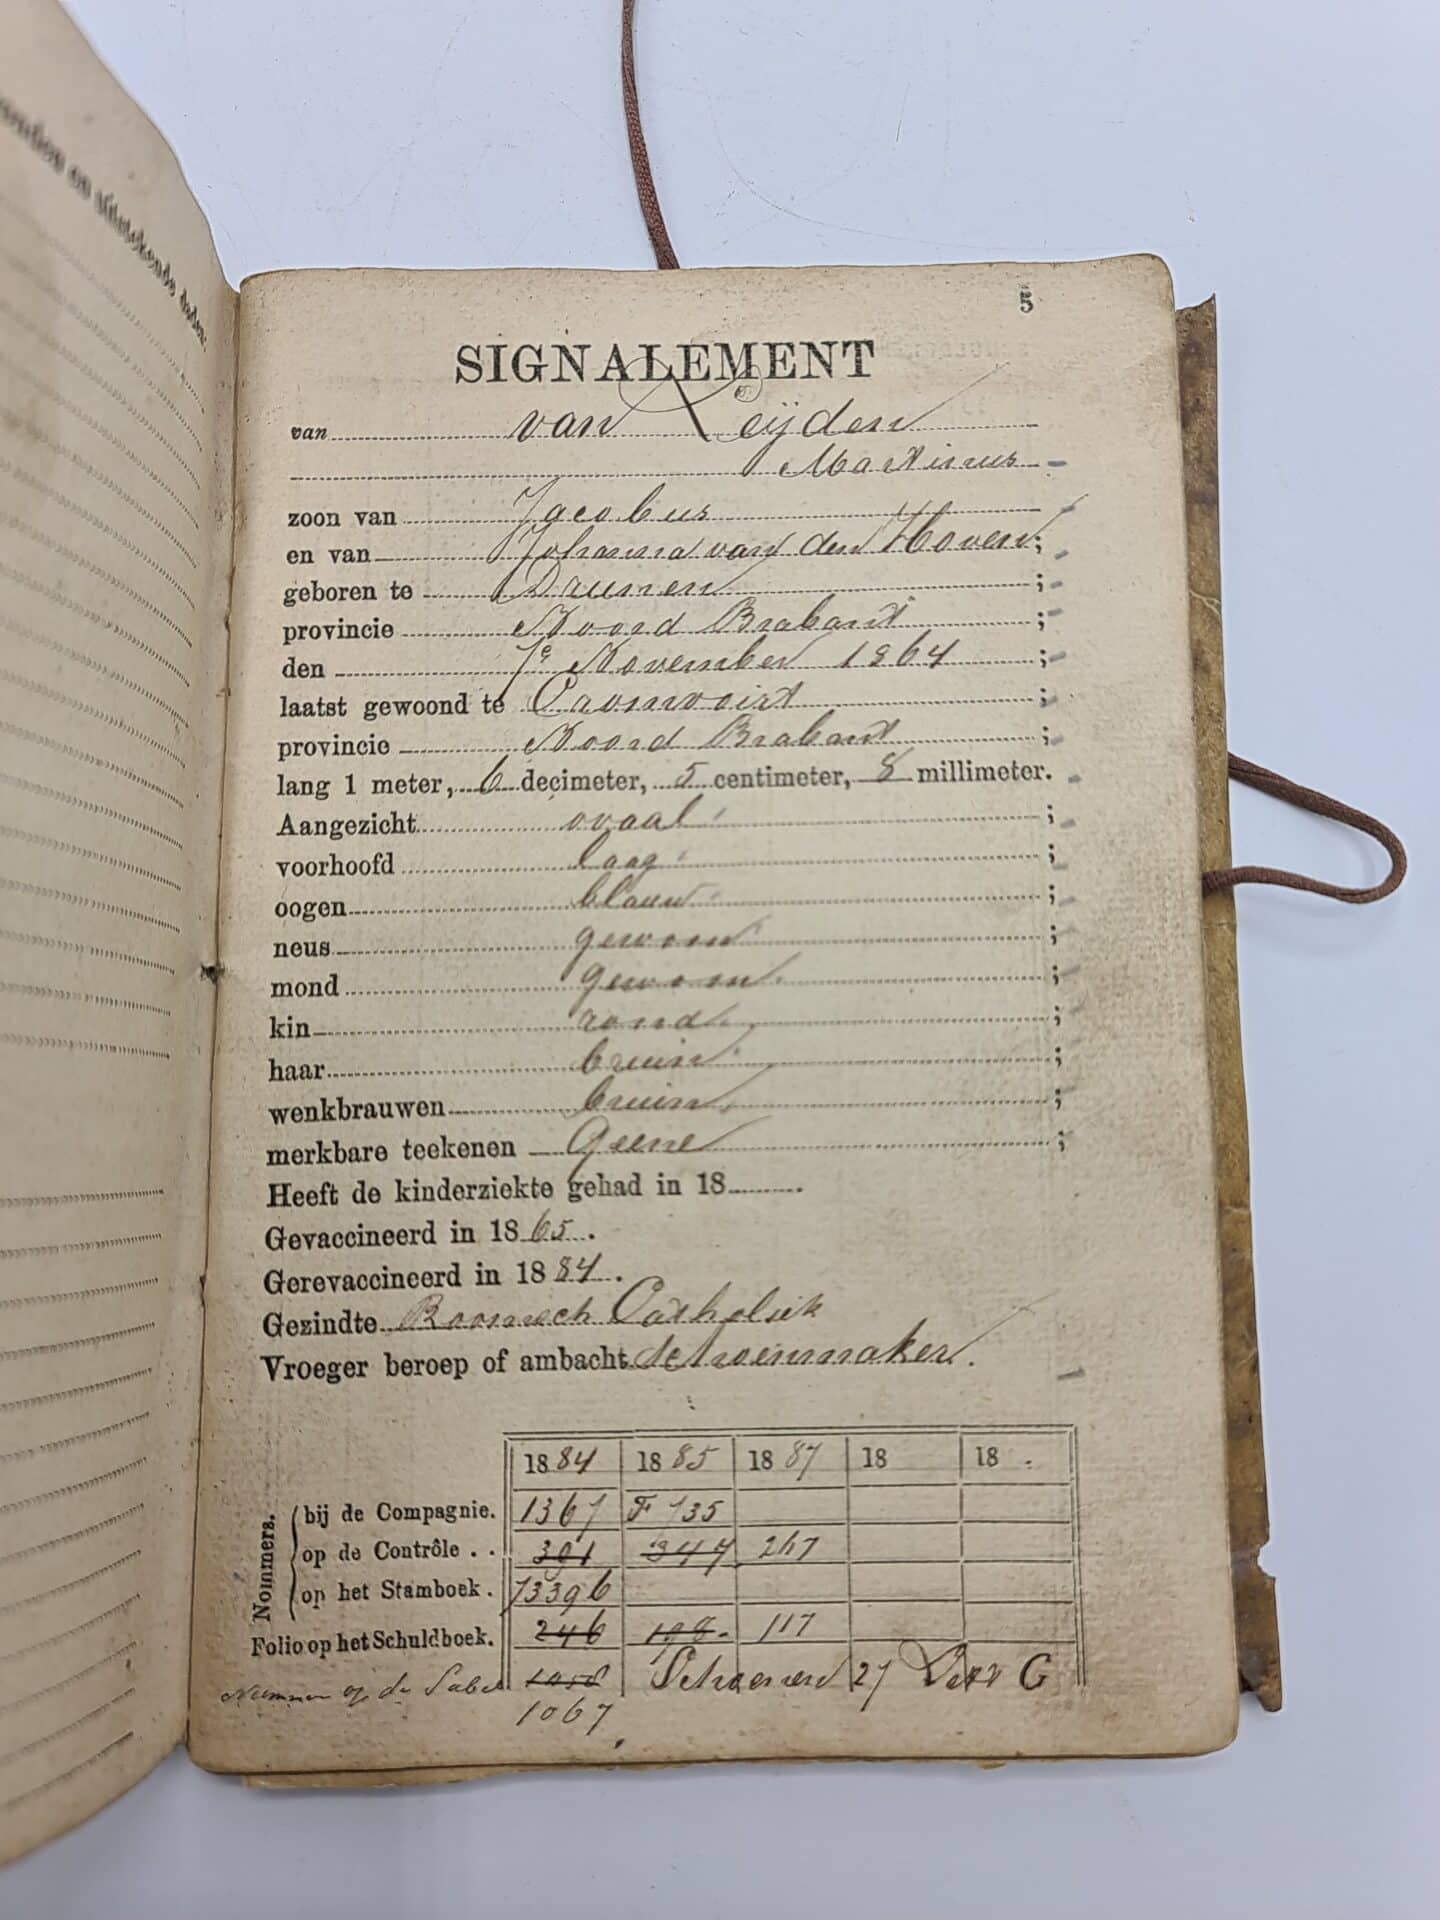 en uitstekende daden.
5
SIGNALEMENT
van van Leijden
Martinus
zoon van Jacobus
en van Johanna van den Hoven;
geboren te Drunen ;
provincie Noord Brabant ;
den 7e November 1864 ;
laatst gewoond te Cromvoirt ;
provincie Noord Brabant ;
lang 1 meter, 6 decimeter, 5 centimeter, 8 millimeter.
Aangezicht ovaal ;
voorhoofd laag ;
oogen blauw ;
neus gewoon ;
mond gewoon ;
kin rond ;
haar bruin ;
wenkbrauwen bruin ;
merkbare teekenen Geene ;
Heeft de kinderziekte gehad in 18 .
Gevaccineerd in 1865.
Gerevaccineerd in 1884.
Gezindte Roomsch Catholiek
Vroeger beroep of ambacht Schoenmaker.
1884 1885 1887 18 18 .
Nommers.
bij de Compagnie. 1367 F 735
op de Contrôle . . 391 347 267
op het Stamboek . 73396
Folio op het Schuldboek. 246 198 117
Nummer op de Sabel 1058 Schoenen 27 G
1067